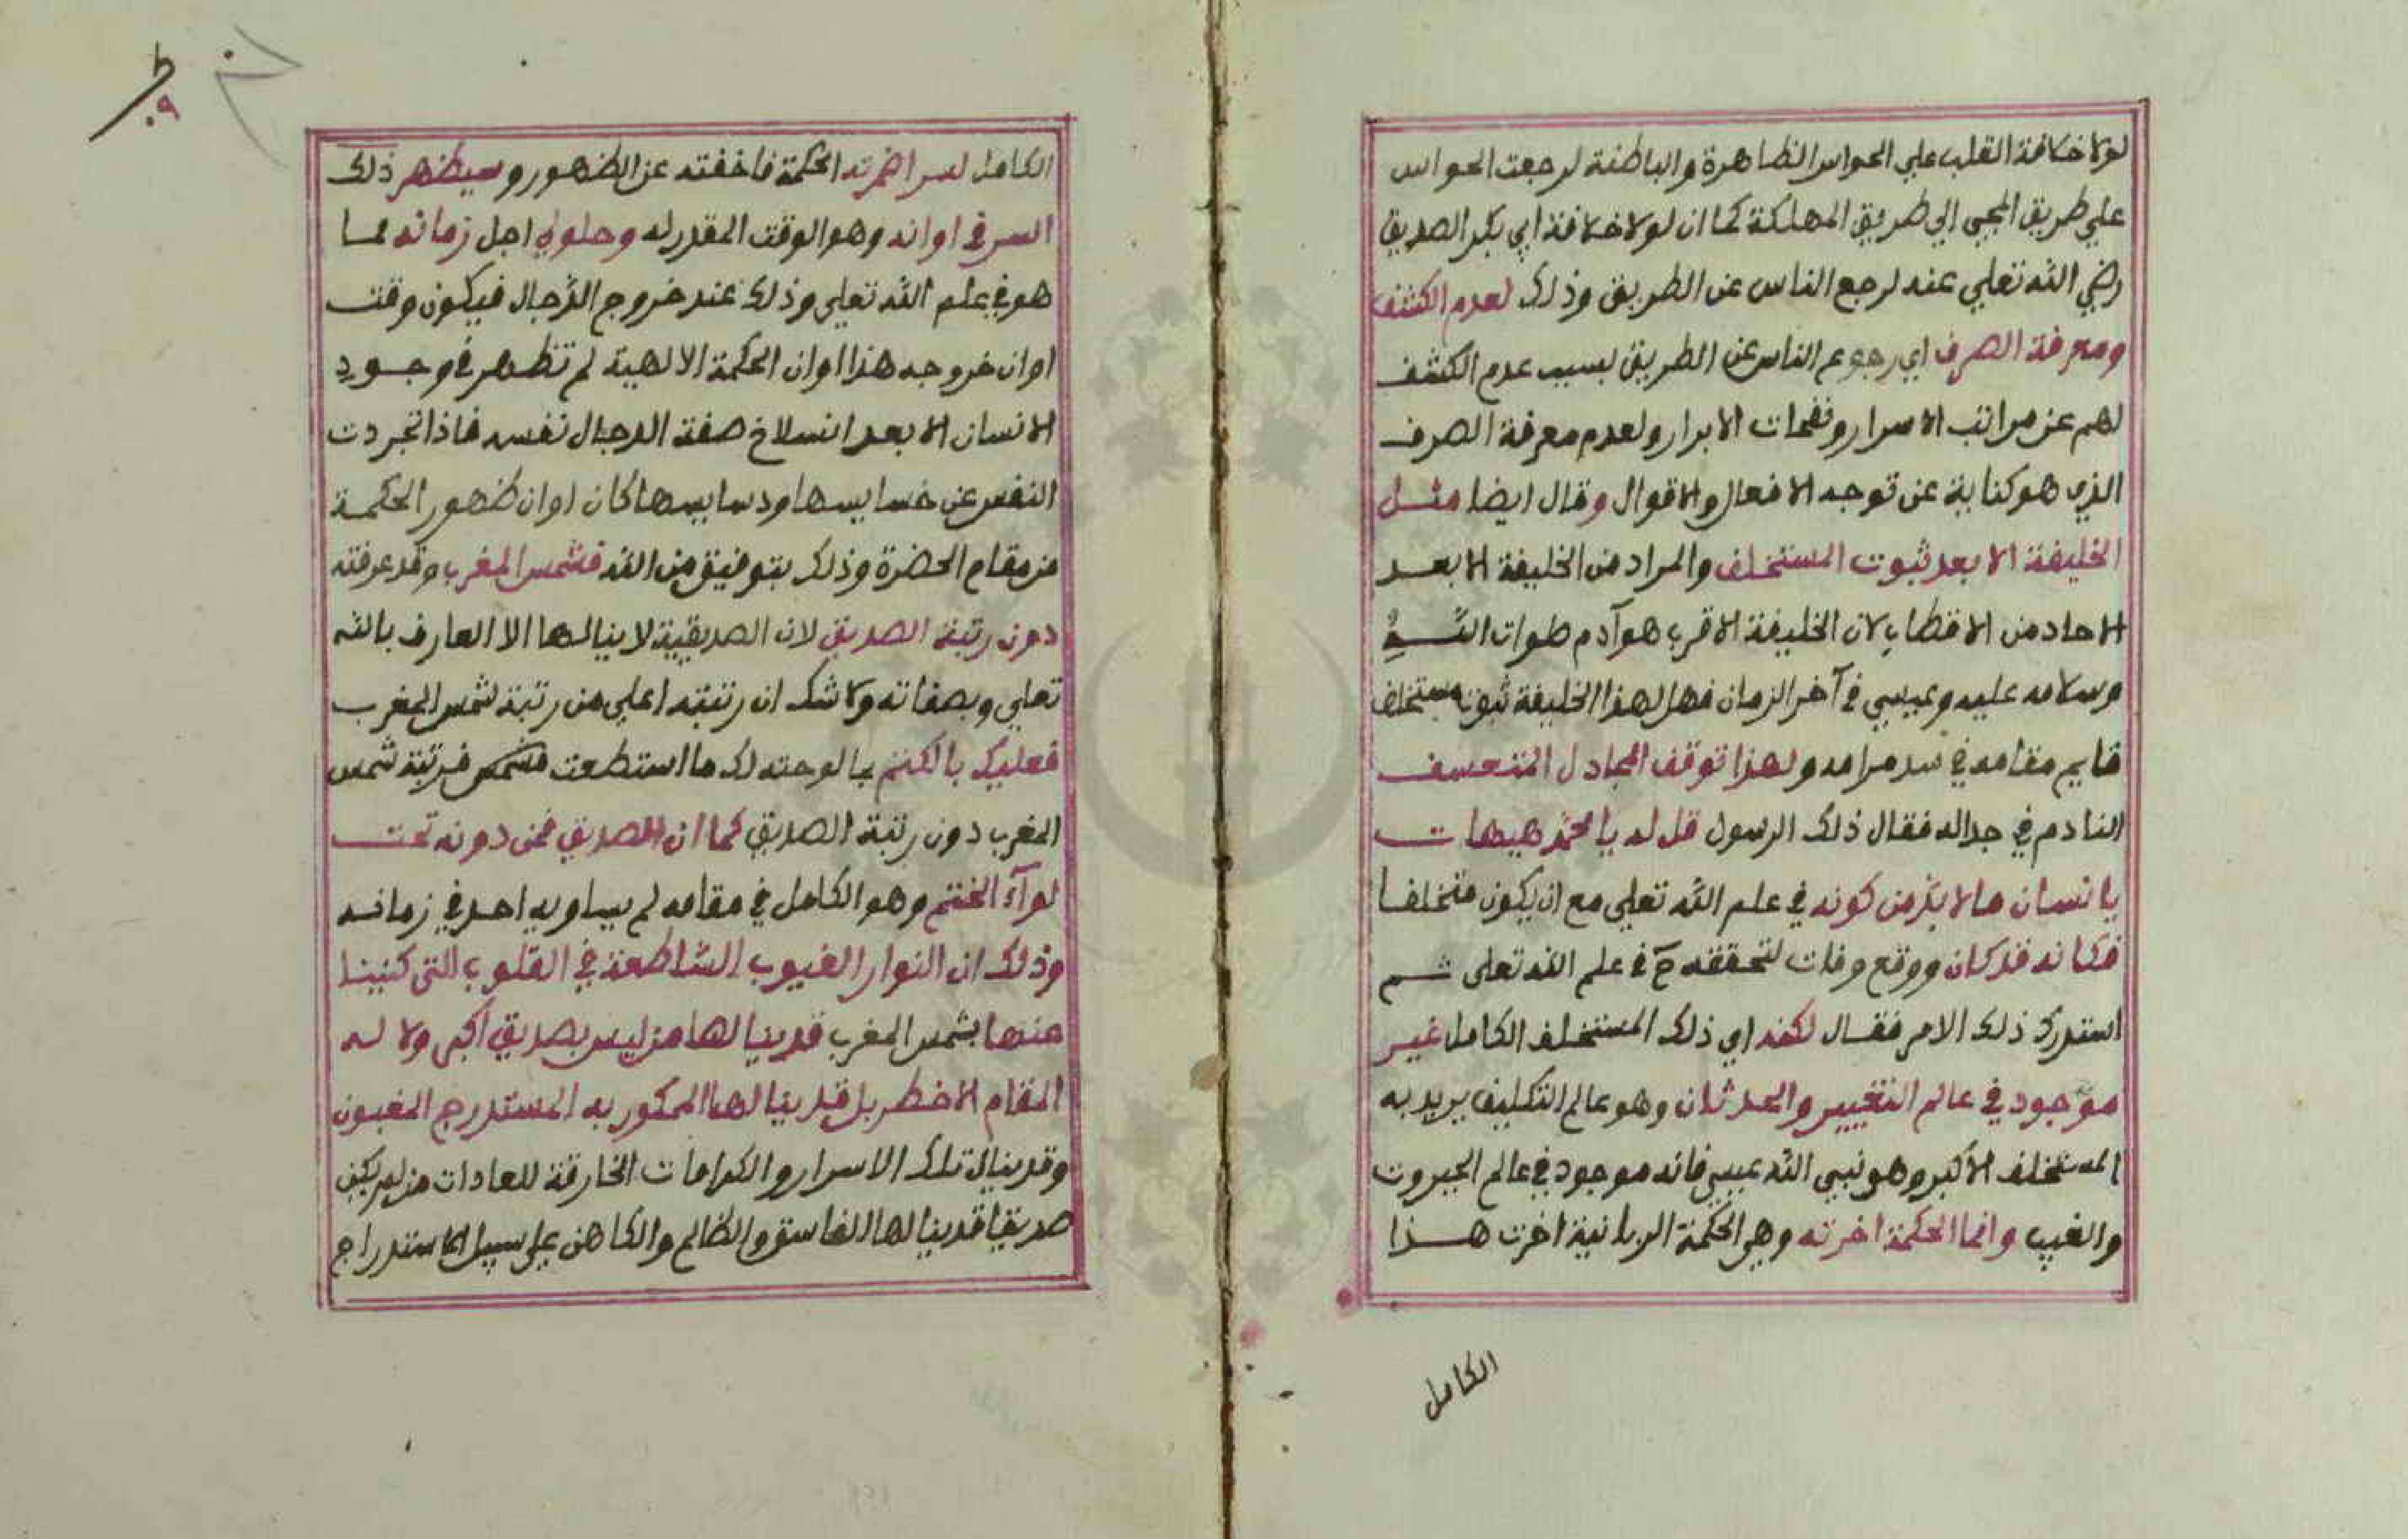 لولا خلافة القلب علي الحواس الظاهرة والباطنة لرجعت الحواس
علي طريق المجي الي طريق المهلكة كما ان لولا خلافة ابي بكر الصديق
رضي الله تعلي عنه لرجع الناس عن الطريق وذلك لعدم الكشف
ومعرفة الصرف اي رجوعم الناس عن الطريق بسبب عدم الكشف
لهم عن مراتب الاسرار ونفحات الابرار ولعدم معرفة الصرف
الذي هو كناية عن توجه الافعال والاقوال وقال ايضا مثل
الخليفة الا بعد ثبوت المستخلف والمراد من الخليفة الابعد
الاحاد من الاقطاب لان الخليفة الاقرب هو آدم صلوات الله
وسلامه عليه وعيسي في آخر الزمان فهل لهذا الخليفة ثبوت مستخلف
قايم مقامه في سد مرامه ولهذا توقف المجادل المتعسف
النادم في جداله فقال ذلك الرسول قل له يا محمد هيهات
يا انسان ما لا بد من كونه في علم الله تعلي مع ان يكون متخلفا
فكانه قد كان ووقع وفات لتحققه ح في علم الله تعلي ثم
استدرك ذلك الامر فقال لكنه اي ذلك المستخلف الكامل غير
موجود في عالم التغيير والحدثان وهو عالم التكليف يريد به
المستخلف الاكبر وهو نبي الله عيسي فانه موجود في عالم الجبروت
والغيب وانما الحكمة اخرته وهي الحكمة الربانية اخرت هذا
الكامل
الكامل لسر اضمرته الحكمة فاخفته عن الظهور وسيظهر ذلك
السر في اوانه وهو الوقت المقدر له وحلول اجل زمانه لما
هو في علم الله تعلي وذلك عند خروج الدجال فيكون وقت
اوان خروجه هذا اوان الحكمة الالهية لم تظهر في وجود
الانسان الا بعد انسلاخ صفة الدجال نفسه فاذا تجردت
النفس عن خسايسها ودسايسها كان اوان ظهور الحكمة
من مقام الحضرة وذلك بتوفيق من الله فشمس المغرب وقد عرفته
دون رتبة الصديق لان الصديقية لا ينالها الا العارف بالله
تعلي وبصفاته ولا شك ان رتبته اعلي من رتبة شمس المغرب
فعليك بالكتم يا لوحته لك ما استطعت فشمس فرتبة شمس
المغرب دون رتبة الصديق كما ان الصديق فمن دونه تحت
لوآء الختم وهو الكامل في مقامه لم يساويه احد في زمانه
وذلك ان النوار الغيوب الساطعة في القلوب التي كنينا
عنها بشمس المغرب قد ينالها من ليس بصديق اكبر ولا له
المقام الاخطر بل قد ينالها الممكور به المستدرج المغبون
وقد ينال تلك الاسرار والكرامات الخارقة للعادات من لم يكن
صديقا قد ينالها الفاسق والظالم والكاهن علي سبيل الاستدراج